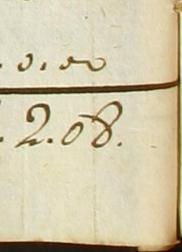 . 0. 00
. 2. 08.